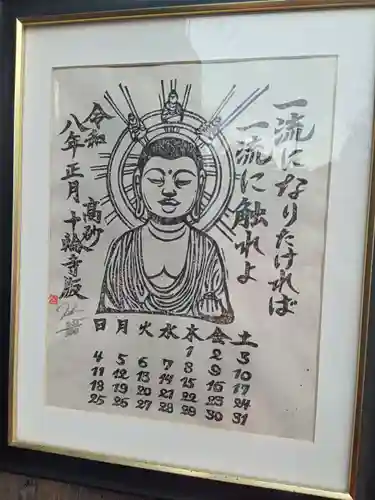 一流になりたければ
一流に触れよ
令和
八年正月
高砂
十輪寺版
日 月 火 水 木 金 土
1 2 3
4 5 6 7 8 9 10
11 12 13 14 15 16 17
18 19 20 21 22 23 24
25 26 27 28 29 30 31